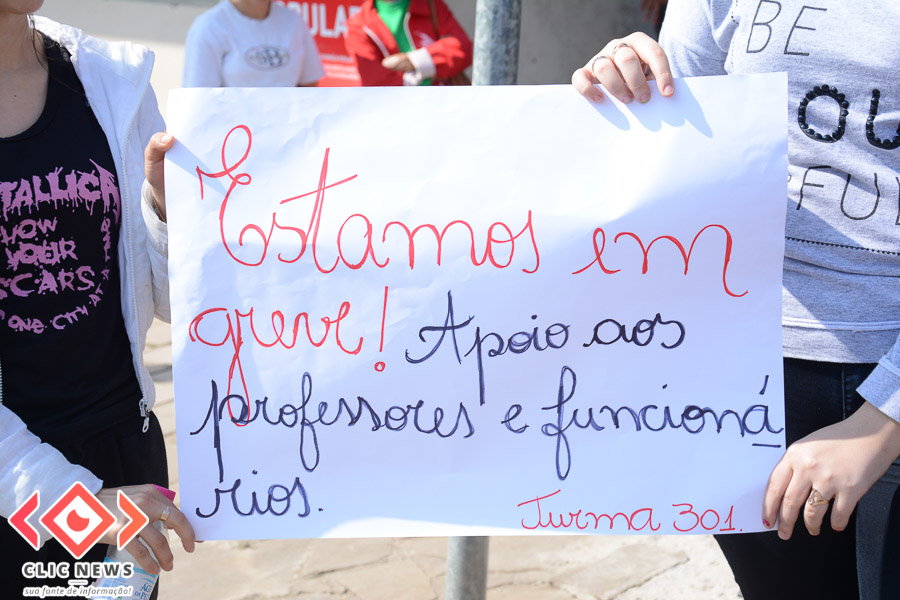 PULAR
BE
OU
FUL
TALLICA
HOW
YOUR
SCARS
ONE CITY AT
Estamos em
greve! Apoio aos
professores e funcioná
rios.
Turma 301.
CLIC NEWS
sua fonte de informação!